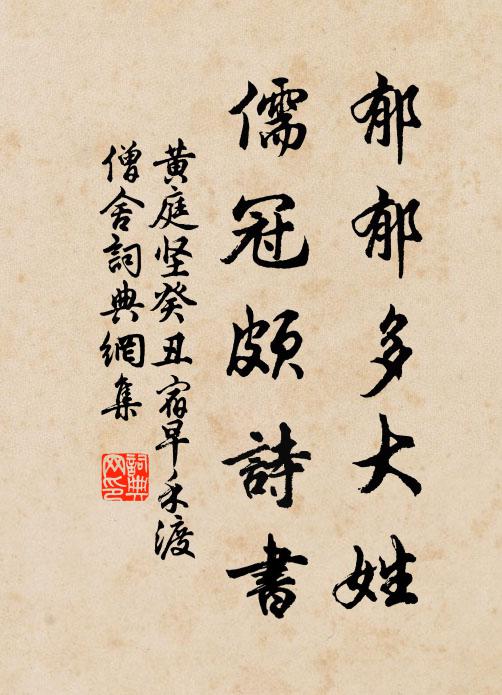 郁郁多大姓
儒冠頗詩書
黃庭坚癸丑宿早禾渡
僧舍詞典網集
詞典網印